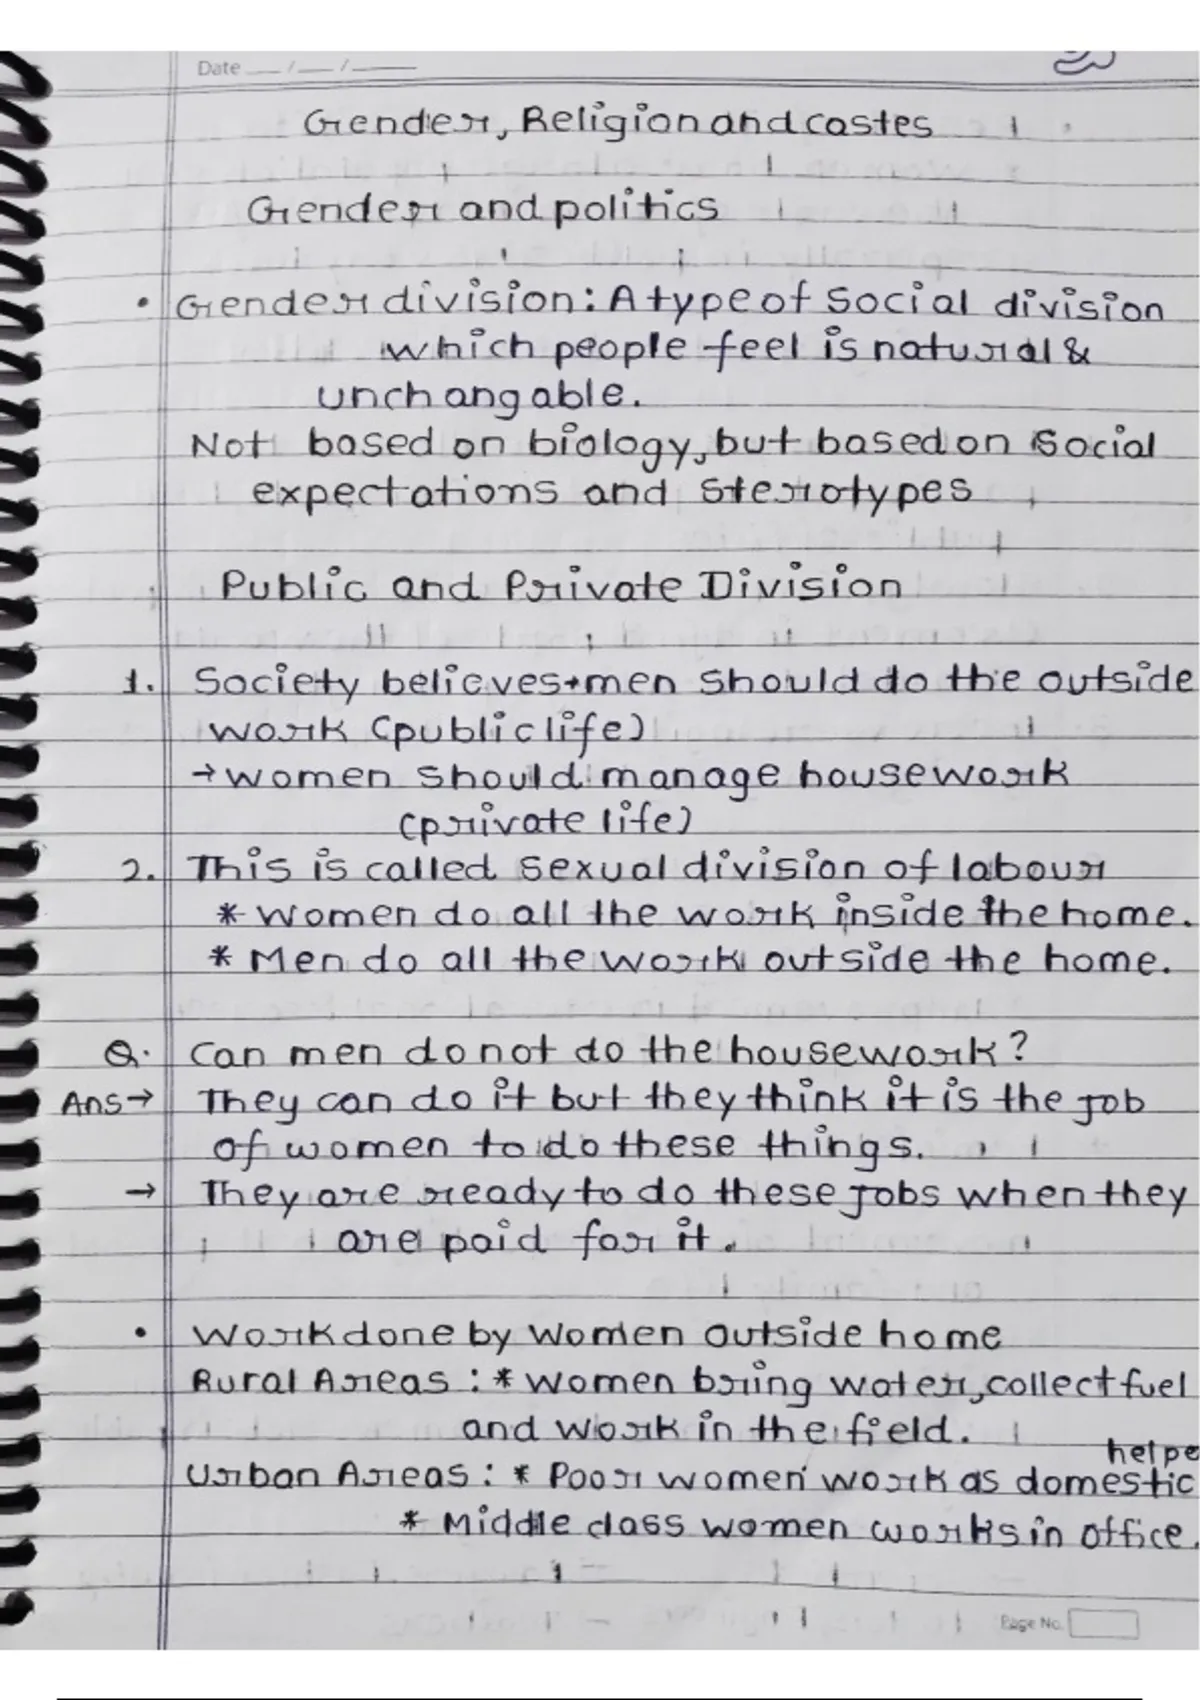 Date __/__/____
Gender, Religion and castes
Gender and politics
• Gender division: A type of social division
which people feel is natural &
unchangable.
Not based on biology, but based on social
expectations and sterotypes
Public and Private Division
1. Society believes→men should do the outside
work (public life)
→ women should manage housework
(private life)
2. This is called sexual division of labour
* women do all the work inside the home.
* Men do all the work outside the home.
Q. Can men do not do the housework?
Ans→ They can do it but they think it is the job
of women to do these things.
→ They are ready to do these jobs when they
are paid for it.
• Work done by women outside home
Rural Areas : * women bring water, collect fuel
and work in the field.
helpe
Urban Areas : * Poor women work as domestic
* Middle class women works in office.
Page No.